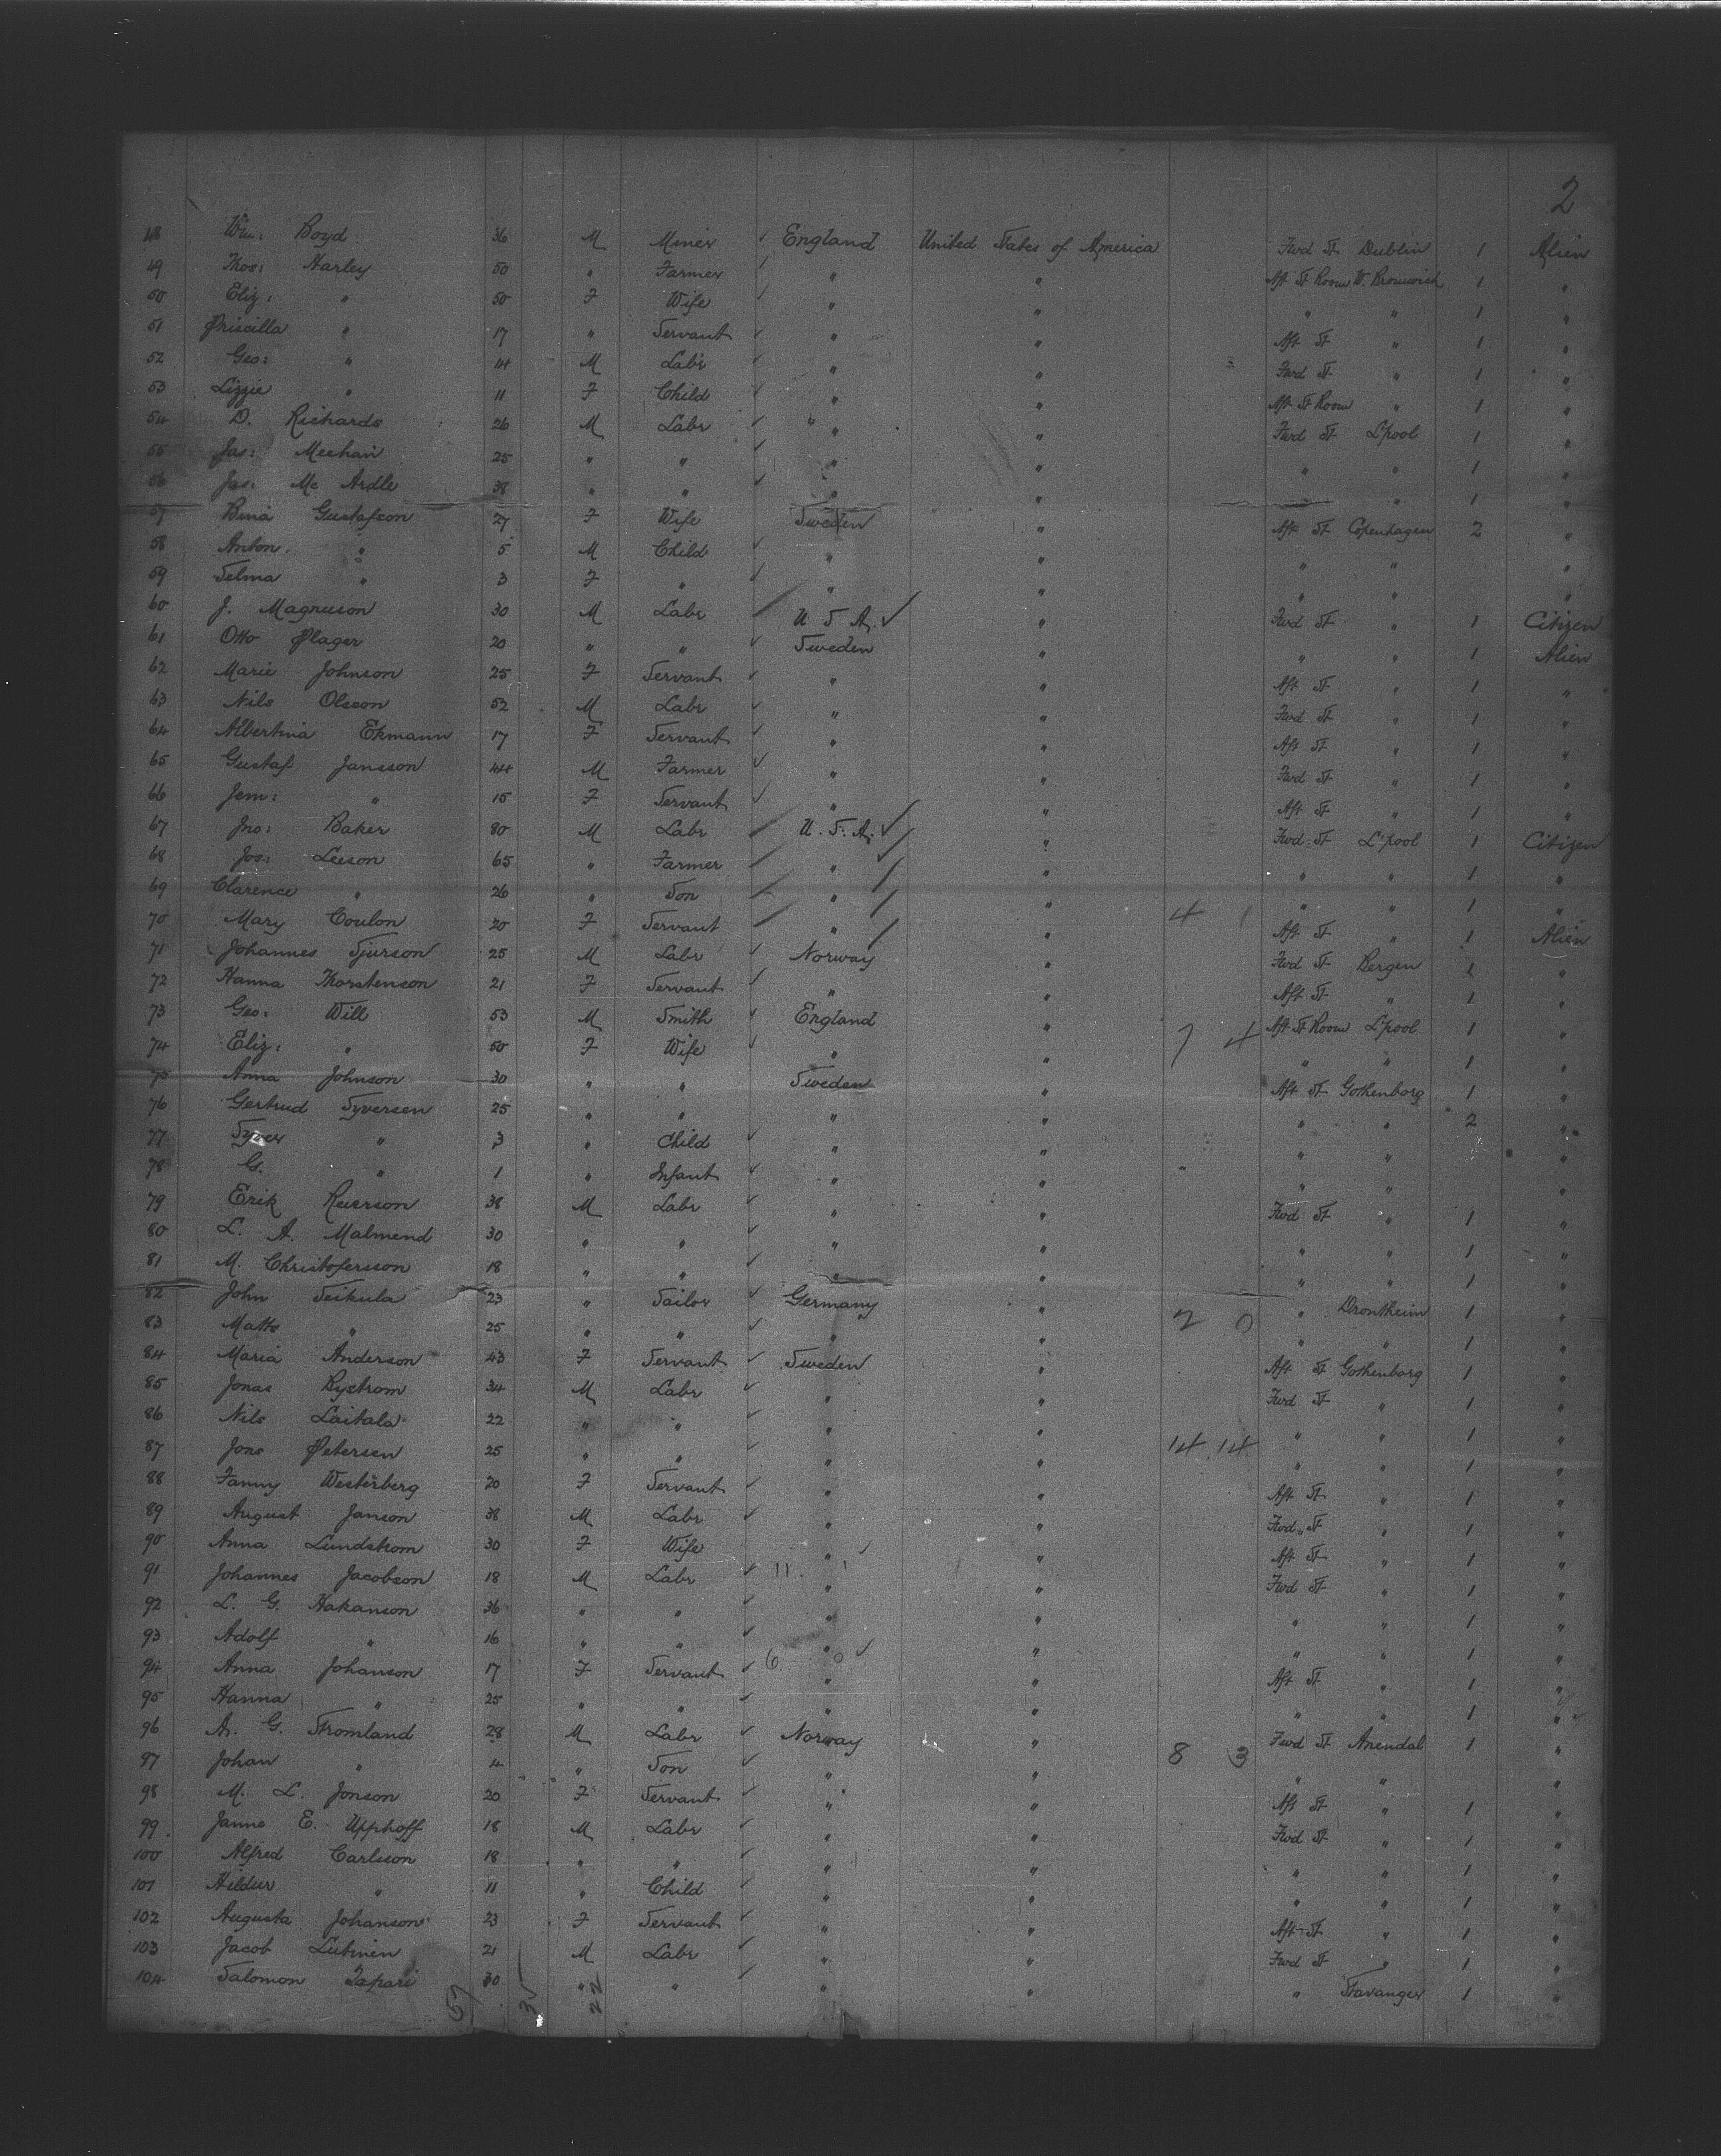 2
48 Wm: Boyd 36 M Miner ✓ England United States of America Fwd St Dublin 1 Alien
49 Thos: Harley 50 " Farmer ✓ " " Aft St Room W. Bromwich 1 "
50 Eliz: " 50 F Wife ✓ " " " " 1 "
51 Priscilla " 17 " Servant ✓ " " Aft St " 1 "
52 Geo: " 14 M Labr ✓ " " Fwd St " 1 "
53 Lizzie " 11 F Child ✓ " " Aft St Room " 1 "
54 D. Richards 26 M Labr ✓ " " Fwd St L'pool 1 "
55 Jas: Meehan 25 " " ✓ " " " " 1 "
56 Jas: Mc Ardle 38 " " ✓ " " " " 1 "
57 Bina Gustafson 27 F Wife Sweden " Aft St Copenhagen 2 "
58 Anton " 5 M Child ✓ " " " " "
59 Selma " 3 F " ✓ " " " " "
60 J. Magnuson 30 M Labr U S A. ✓ " Fwd St " 1 Citizen
61 Otto Plager 20 " " ✓ Sweden " " " 1 Alien
62 Marie Johnson 25 F Servant ✓ " " Aft St " 1 "
63 Nils Olsson 52 M Labr ✓ " " Fwd St " 1 "
64 Albertina Ekmann 17 F Servant ✓ " " Aft St " 1 "
65 Gustaf Jansson 44 M Farmer ✓ " " Fwd St " 1 "
66 Jem: " 15 F Servant ✓ " " Aft St " 1 "
67 Jno: Baker 80 M Labr U. S. A. ✓ " Fwd St L'pool 1 Citizen
68 Jos: Leeson 65 " Farmer " " " " 1 "
69 Clarence " 26 " Son " " " " 1 "
70 Mary Coulon 20 F Servant " " 4 1 Aft St " 1 Alien
71 Johannes Sjurson 25 M Labr ✓ Norway " Fwd St Bergen 1 "
72 Hanna Thorstenson 21 F Servant ✓ " " Aft St " 1 "
73 Geo: Will 53 M Smith ✓ England " Aft St Room L'pool 1 "
74 Eliz: " 50 F Wife ✓ " " 7 4 " " 1 "
75 Anna Johnson 30 " " Sweden " Aft St Gothenborg 1 "
76 Gertrud Syversen 25 " " " " " " 2 "
77 " 3 " Child ✓ " " " " "
78 G. " 1 " Infant ✓ " " " " "
79 Erik Ruerson 38 M Labr ✓ " " Fwd St " 1 "
80 L. A. Malmend 30 " " ✓ " " " " 1 "
81 M. Christofersson 18 " " ✓ " " " " 1 "
82 John Seikula 23 " Sailor ✓ Germany " 2 0 " Drontheim 1 "
83 Matts " 25 " " ✓ " " " " 1 "
84 Maria Anderson 43 F Servant ✓ Sweden " Aft St Gothenborg 1 "
85 Jonas Rystrom 34 M Labr ✓ " " Fwd St " 1 "
86 Nils Laitala 22 " " ✓ " " " " 1 "
87 Jons Petersen 25 " " ✓ " " 14 14 " " 1 "
88 Fanny Westerberg 20 F Servant ✓ " " Aft St " 1 "
89 August Janson 38 M Labr ✓ " " Fwd St " 1 "
90 Anna Lundstrom 30 F Wife " ✓ " Aft St " 1 "
91 Johannes Jacobson 18 M Labr ✓ 11 " " Fwd St " 1 "
92 L. G. Hakanson 36 " " ✓ " " " " 1 "
93 Adolf " 16 " " ✓ " ✓ " " " 1 "
94 Anna Johanson 17 F Servant ✓ 6 0 " " Aft St " 1 "
95 Hanna " 25 " " ✓ " " " " 1 "
96 A. G. Stromland 28 M Labr ✓ Norway " 8 3 Fwd St Arendal 1 "
97 Johan " 4 " Son ✓ " " " " "
98 M. L. Jonson 20 F Servant ✓ " " Aft St " 1 "
99 Janne E. Upphoff 18 M Labr ✓ " " Fwd St " 1 "
100 Alfred Carlsson 18 " " ✓ " " " " 1 "
101 Hildur " 11 " Child ✓ " " " " 1 "
102 Augusta Johanson 23 F Servant ✓ " " Aft St " 1 "
103 Jacob Lutinen 21 M Labr ✓ " " Fwd St " 1 "
104 Salomon Tapari 30 " " ✓ " " " Stavanger 1 "
57 35 22